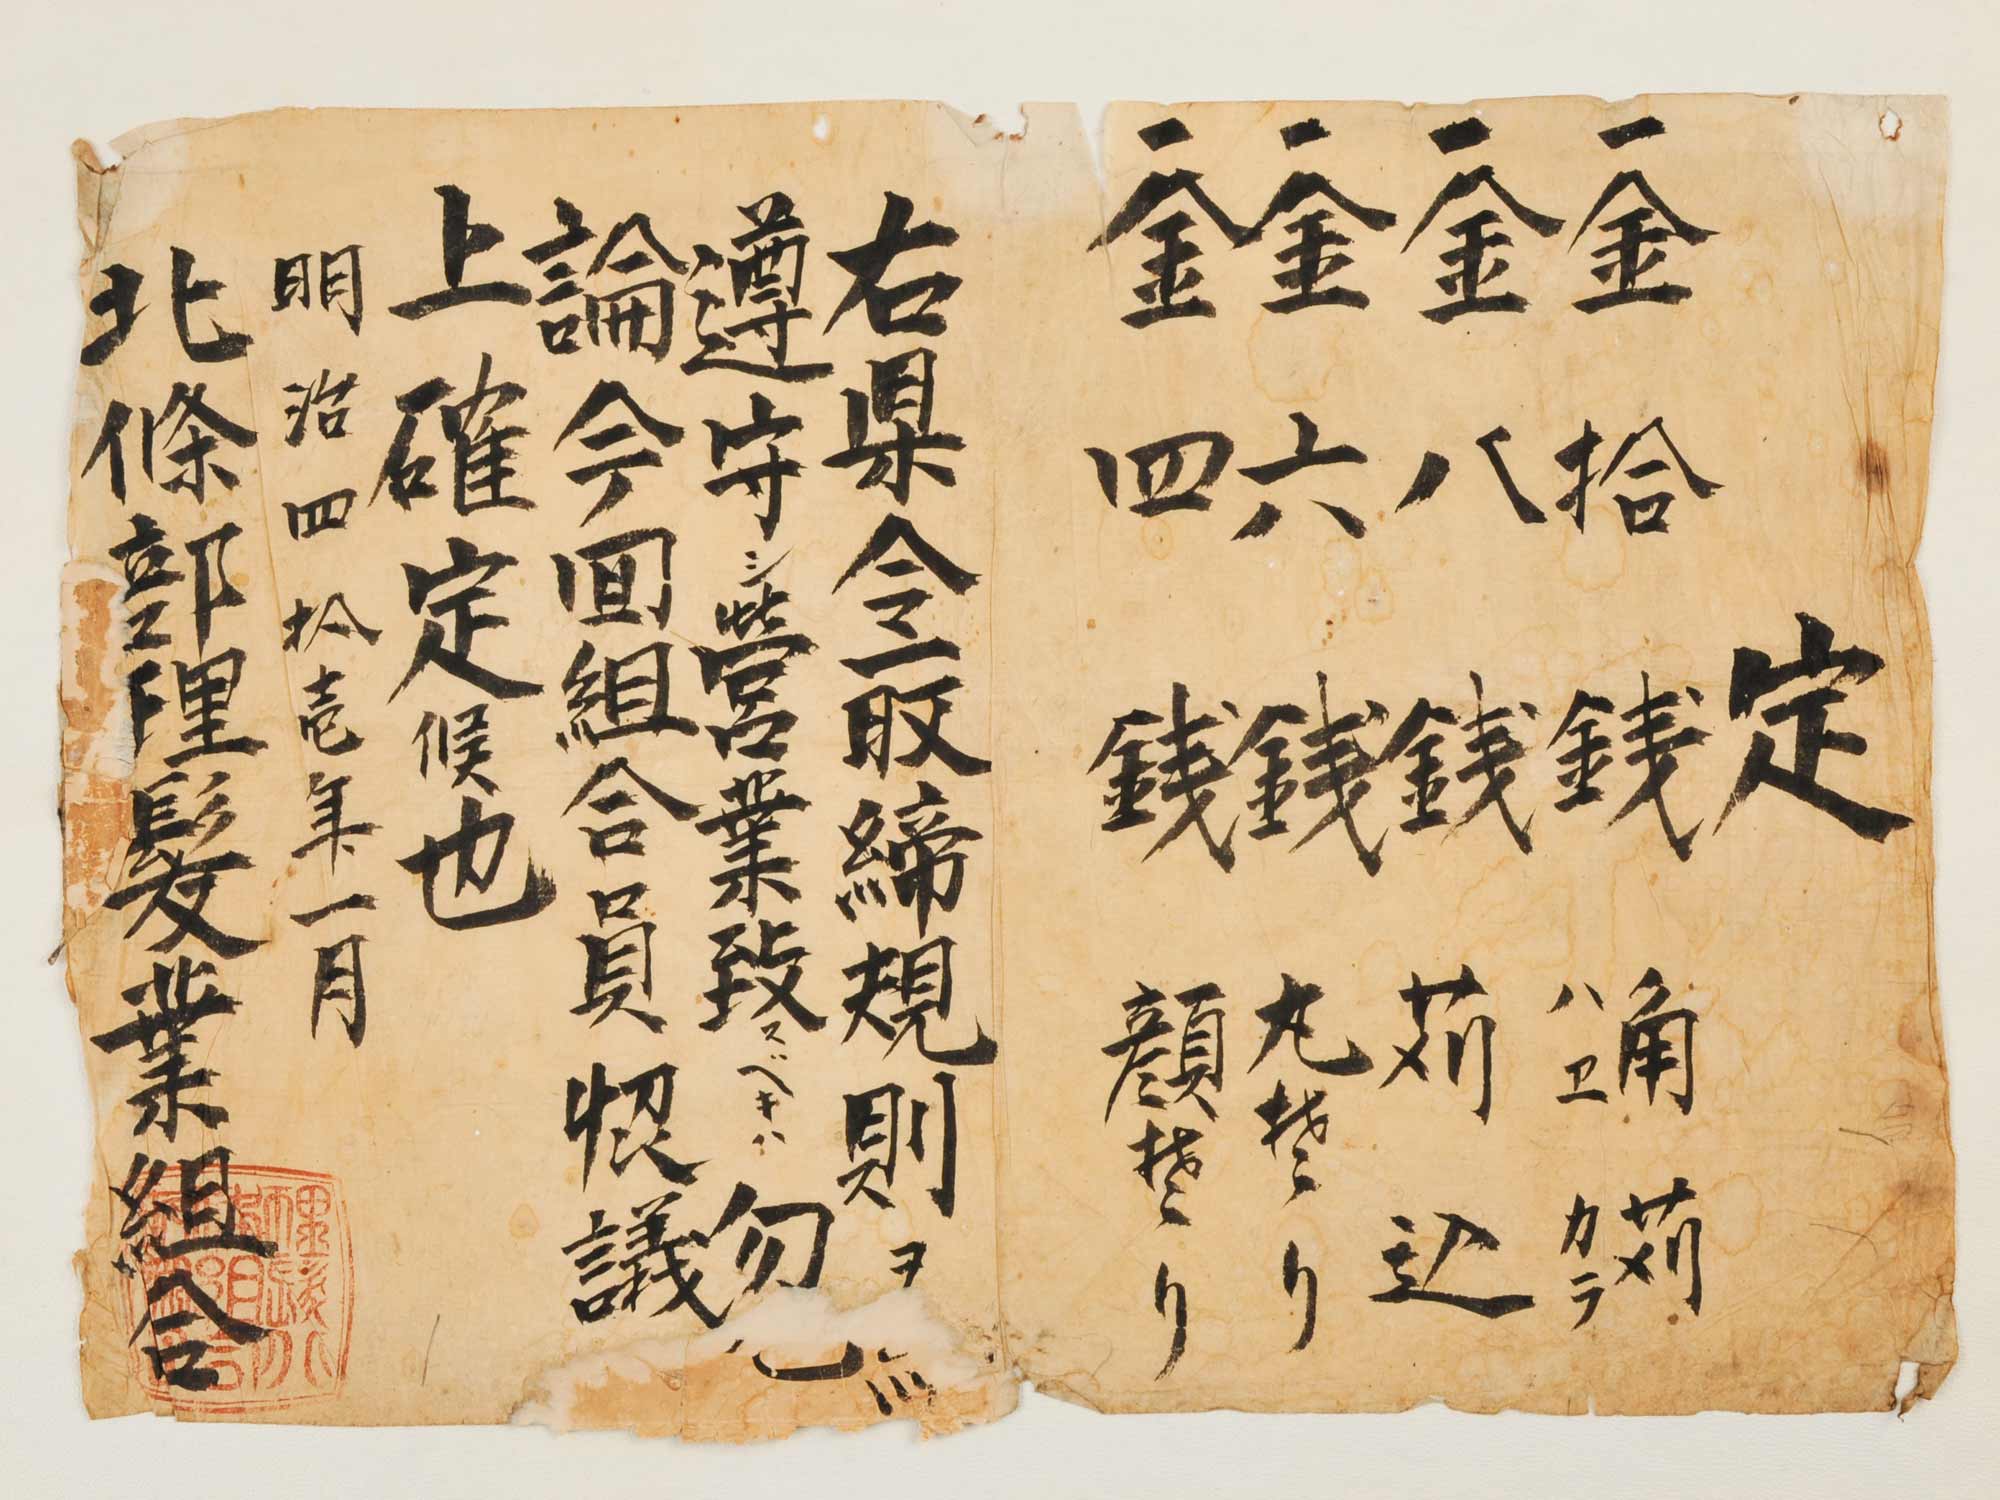 定
一金拾銭 角刈
ハヱカラ
一金八銭 刈込
一金六銭 丸そり
一金四銭 顔そり
右県令取締規則ヲ
遵守シ営業致スベキハ勿
論今回組合員協議
上確定候也
明治四拾壱年一月
北條部理髪業組合